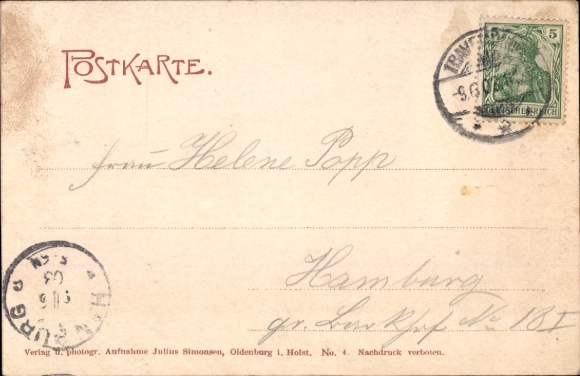 POSTKARTE.
5
Frau Helene Popp
Hamburg
gr. No 18 I
HAMBURG
Verlag u. photogr. Aufnahme Julius Simonsen, Oldenburg i. Holst. No. 4. Nachdruck verboten.